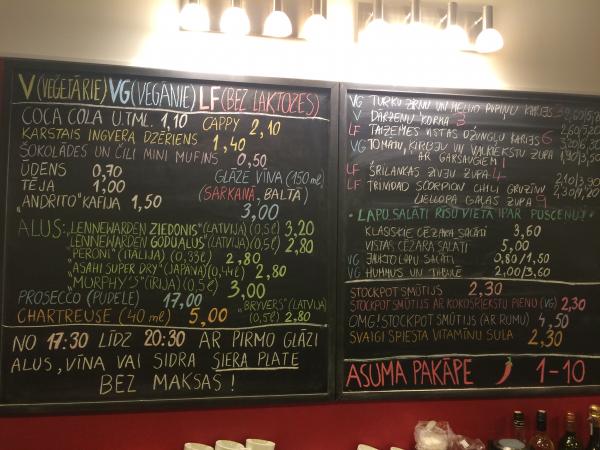 V (VEĢETĀRIE) VG (VEGĀNIE) LF (BEZ LAKTOZES)
COCA COLA U.TML. 1,10 CAPPY 2,10
KARSTAIS INGVERA DZĒRIENS 1,40
ŠOKOLĀDES UN ČILI MINI MUFINS 0,50
ŪDENS 0,70 GLĀZE VĪNA (150 ml)
TĒJA 1,00 (SARKANĀ, BALTĀ)
"ANDRITO" KAFIJA 1,50 3,00
ALUS: "LENNEWARDEN ZIEDONIS" (LATVIJA) (0,5ℓ) 3,20
"LENNEWARDEN GODUAĻUS" (LATVIJA) (0,5ℓ) 2,80
"PERONI" (ITĀLIJA) (0,33ℓ) 2,80
"ASAHI SUPER DRY" (JAPĀNA) (0,4ℓ) 2,80
"MURPHY'S" (ĪRIJA) (0,5ℓ) 3,00
PROSECCO (PUDELE) 17,00 "BRYVERS" (LATVIJA)
CHARTREUSE (40 ml) 5,00 (0,5ℓ) 2,80
NO 17:30 LĪDZ 20:30 AR PIRMO GLĀZI
ALUS, VĪNA VAI SIDRA SIERA PLATE
BEZ MAKSAS!
VG TURKU ZIRŅU UN MELNO PUPIŅU KARIJS 3
V DĀRZEŅU KORMA 3
LF TAIZEMES VISTAS DŽUNGĻU KARIJS 6
VG TOMĀTU, ĶIRBJU UN VALRIEKSTU ZUPA
AR GARŠAUGIEM 1
LF ŠRILANKAS ZIVJU ZUPA 4
LF TRINIDAD SCORPION CHILI GRUZĪNU
LIELLOPA GAĻAS ZUPA 9
* LAPU SALĀTI RĪSU VIETĀ PAR PUSCENU! *
KLASISKIE CĒZARA SALĀTI 3,60
VISTAS CĒZARA SALĀTI 5,00
VG JAUKTO LAPU SALĀTI 0,80/1,50
VG HUMMUS UN TABULE 2,00/3,60
STOCKPOT SMŪTIJS 2,30
STOCKPOT SMŪTIJS AR KOKOSRIEKSTU PIENU (VG) 2,30
OMG! STOCKPOT SMŪTIJS (AR RUMU) 4,50
SVAIGI SPIESTA VITAMĪNU SULA 2,30
ASUMA PAKĀPE 1-10